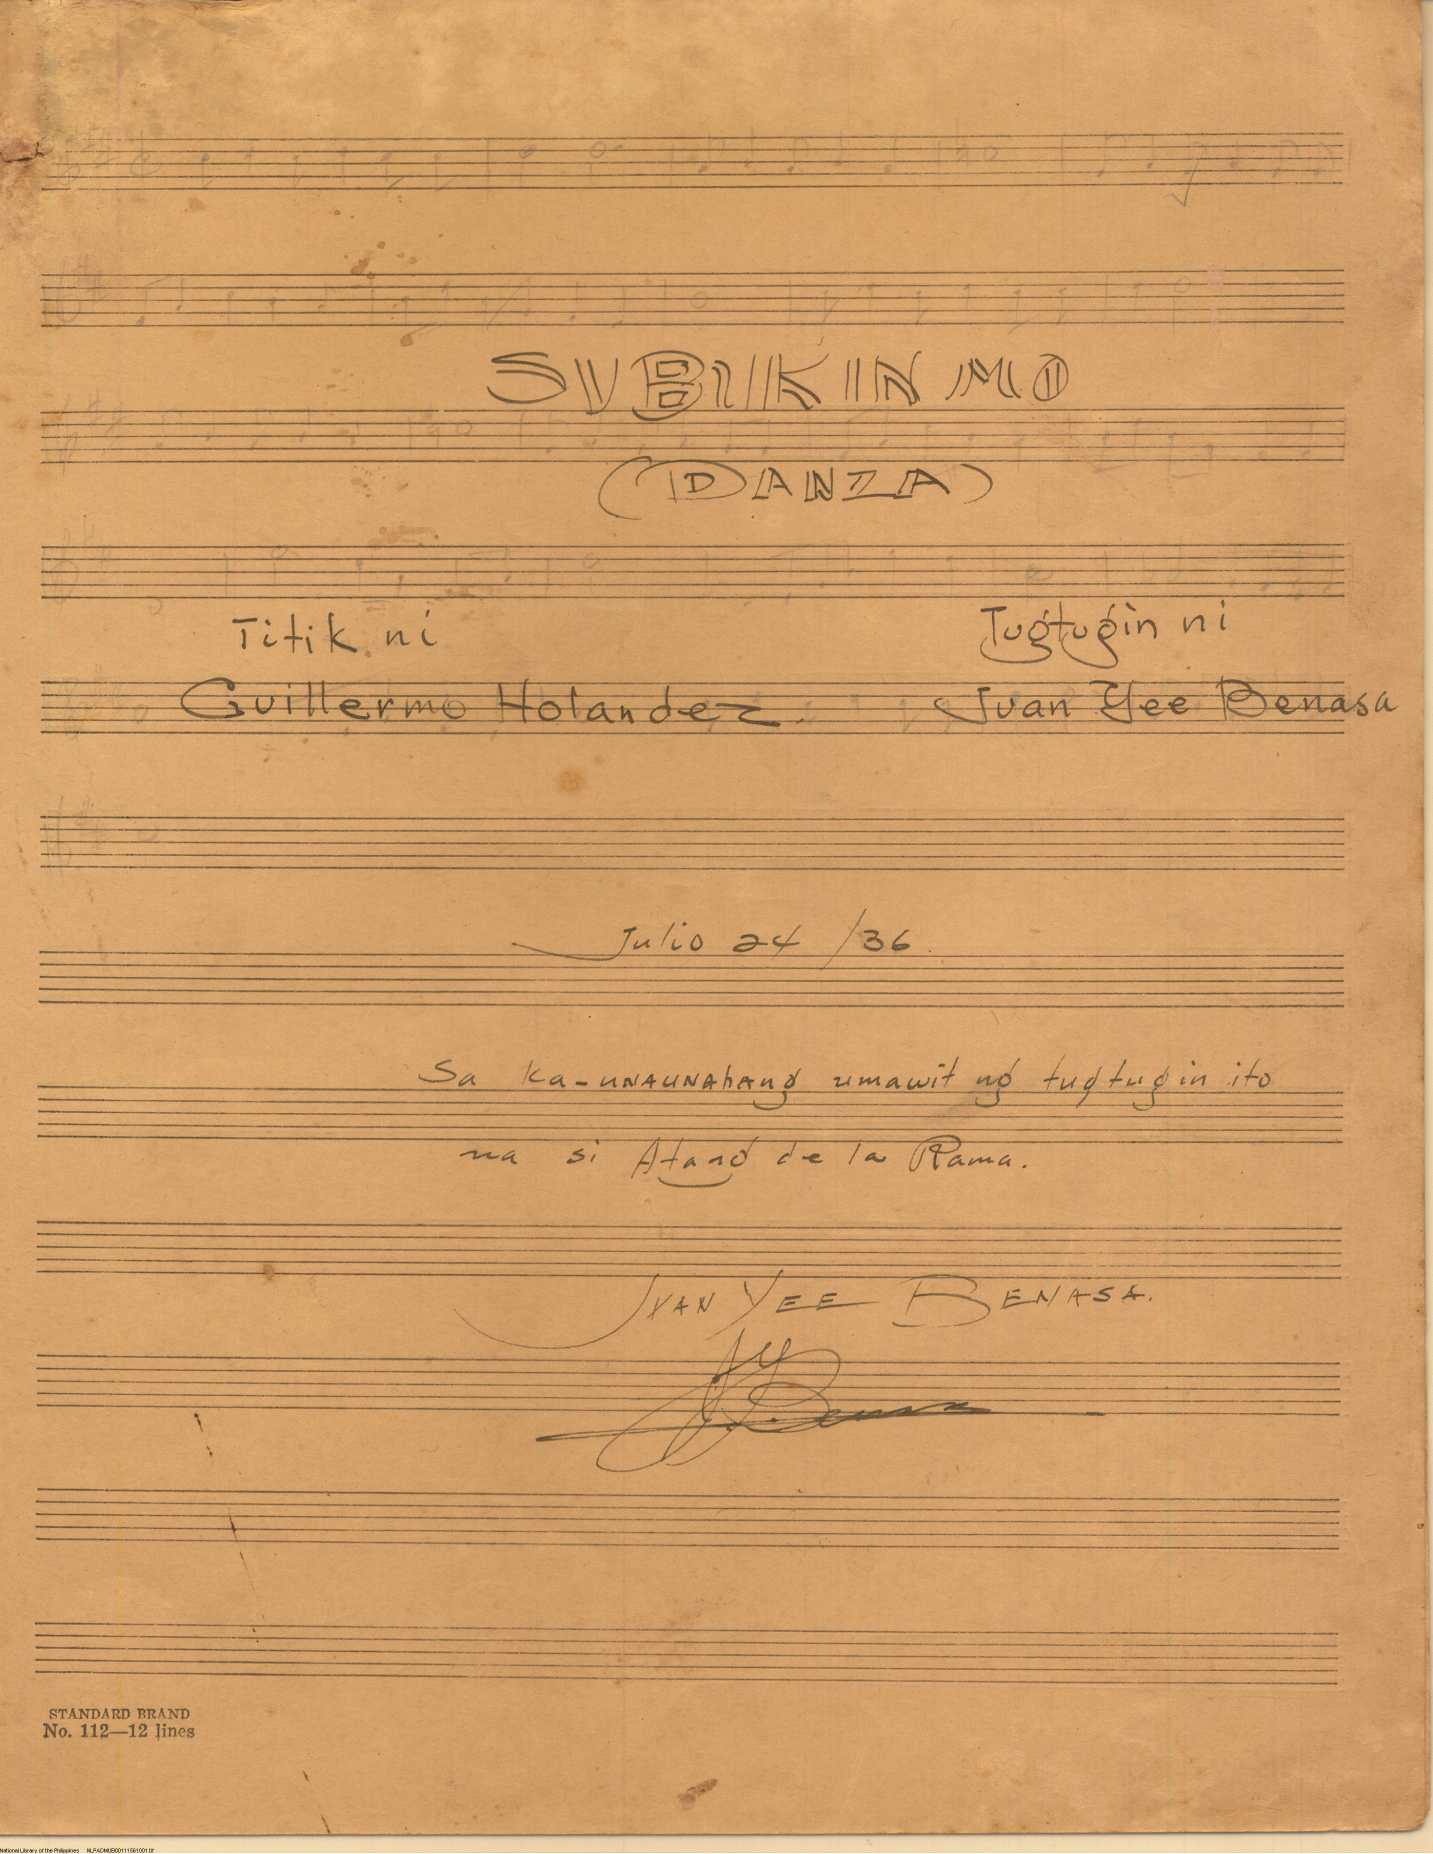 SUBUKIN MO
(DANZA)
Titik ni
Tugtugin ni
Guillermo Holandez.
Juan Yee Benasa
Julio 24 /36.
Sa ka-unaunahang umawit ng tugtugin ito
na si Atang de la Rama.
JUAN YEE BENASA.
STANDARD BRAND
No. 112—12 lines
National Library of the Philippines